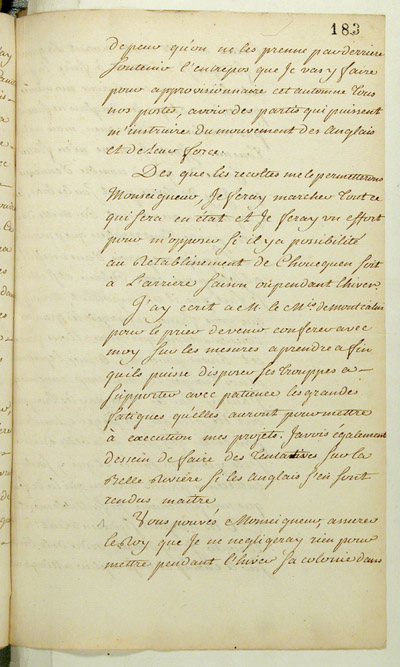 183
de peur qu'on ne les prenne par derriere
soutenir l'entrepos que Je vas y faire
pour approvisiönnaire cet automne tous
nos postes, avoir des partis qui puissent
m'instruire du mouvement des anglais
et de Leur force.
Des que les recoltes me le permetterons
Monseigneur, Je feray marcher tout ce
qui sera en état et Je feray un effort
pour m'opposer si il y a possibilité
au Retablissement de Choueguen soit
a L'arriere saison ou pendant l'hiver
J'ay ecrit a M. le M.is de montcalm
pour le prier de venir conferer avec
moy sur les mesures a prendre afin
qu'ils puisse disposer ses trouppes a
supporter avec patience les grandes
fatigues qu'elles auront pour mettre
à execution mes projets. J'avois également
dessein de faire des Tentatives sur la
Belle Riviere si les anglais s'en sont
rendus maitre
Vous pouvés Monseigneur, assurer
le Roy que Je ne negligeray rien pour
mettre pendant l'hiver sa colonie dans